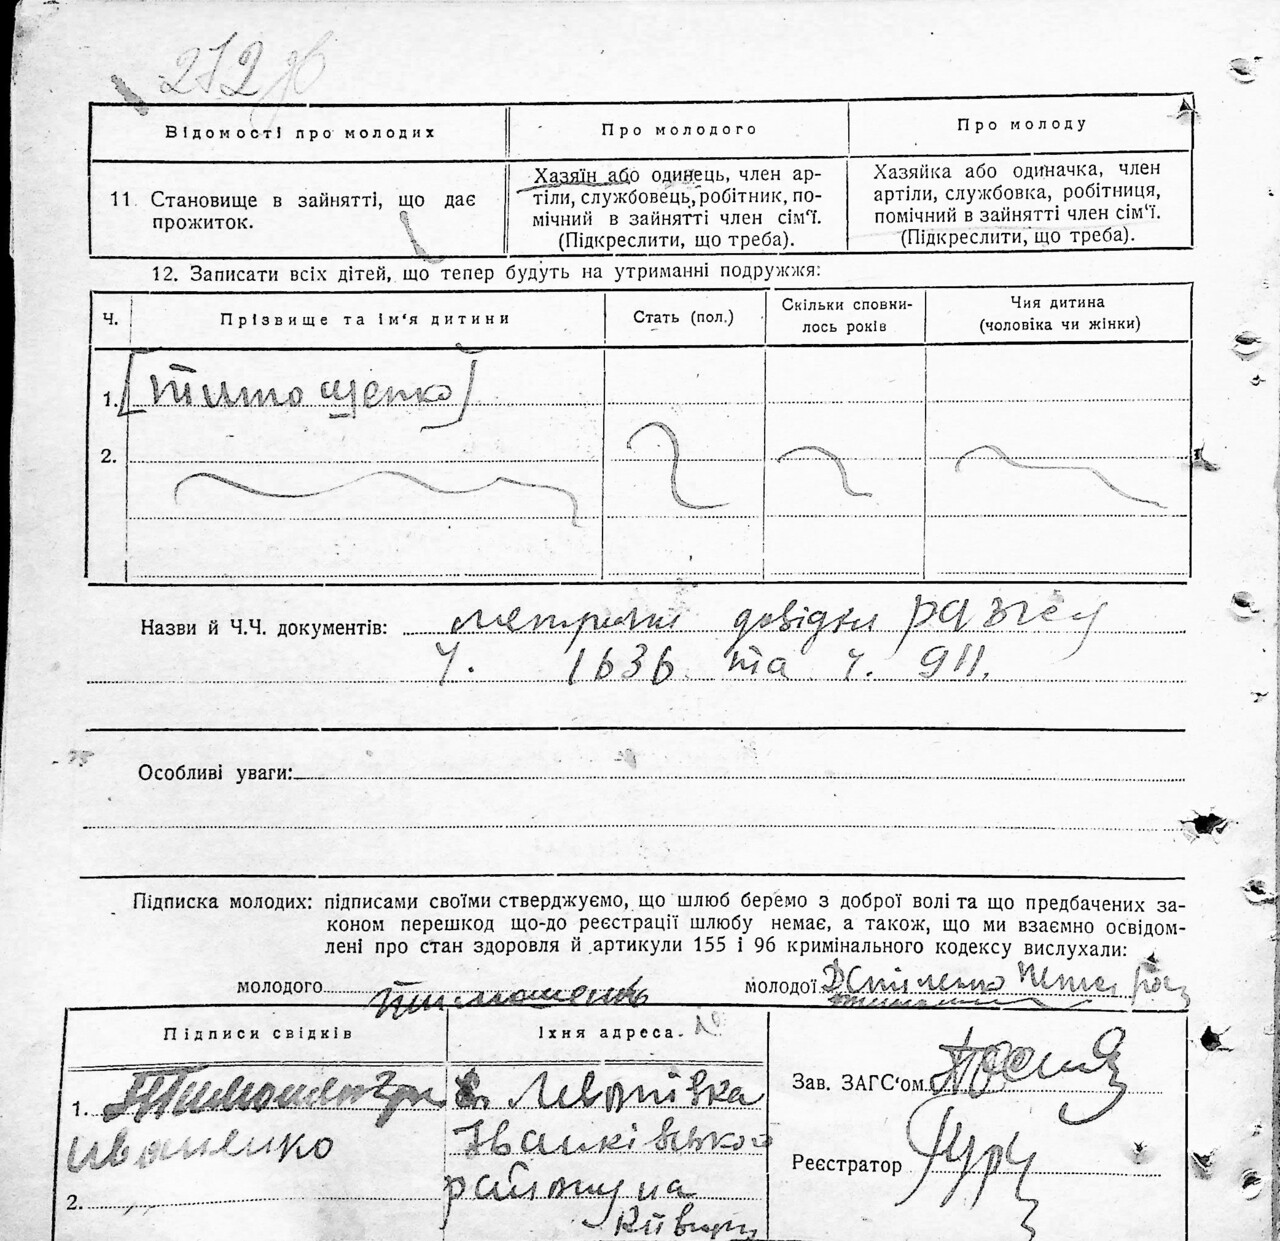 272 зв
Відомості про молодих
Про молодого
Про молоду
11. Становище в зайнятті, що дає
прожиток.
Хазяїн або одинець, член ар-
тілі, службовець, робітник, по-
мічний в зайнятті член сім'ї.
(Підкреслити, що треба).
Хазяйка або одиначка, член
артілі, службовка, робітниця,
помічний в зайнятті член сім'ї.
(Підкреслити, що треба).
12. Записати всіх дітей, що тепер будуть на утриманні подружжя:
Ч.
Прізвище та ім'я дитини
Стать (пол.)
Скільки сповни-
лось років
Чия дитина
(чоловіка чи жінки)
1.
2.
Назви й Ч.Ч. документів: метрики довідки
ч. 1636 та ч. 911.
Особливі уваги:
Підписка молодих: підписами своїми стверджуємо, що шлюб беремо з доброї волі та що предбачених за-
коном перешкод що-до реєстрації шлюбу немає, а також, що ми взаємно освідом-
лені про стан здоровля й артикули 155 і 96 кримінального кодексу вислухали:
молодого
молодої
Підписи свідків
Їхня адреса.
1.
Іваненко
2.
Іванківського
району на
Київщ
Зав. ЗАГС'ом
Реєстратор